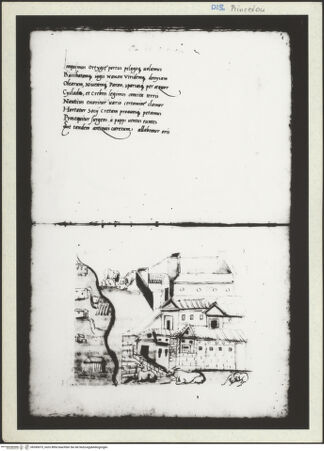 DIS. Princeton
Linquimus Ortygiȩ portus pelagoq, uolamus
Bacchatamq, iugis Naxon Viridemq, donysam
Olearum, Niueamq, Paron, sparsasq, per ȩquor
Cycladas, et Crebris legimus concita terris
Nauticus exoritur uario certamine clamor
Hortatur Socij Cretam proauosq, petamus
Prosequitur surgens a puppi uentus euntes
Et tandem antiquis curetum allabimur oris